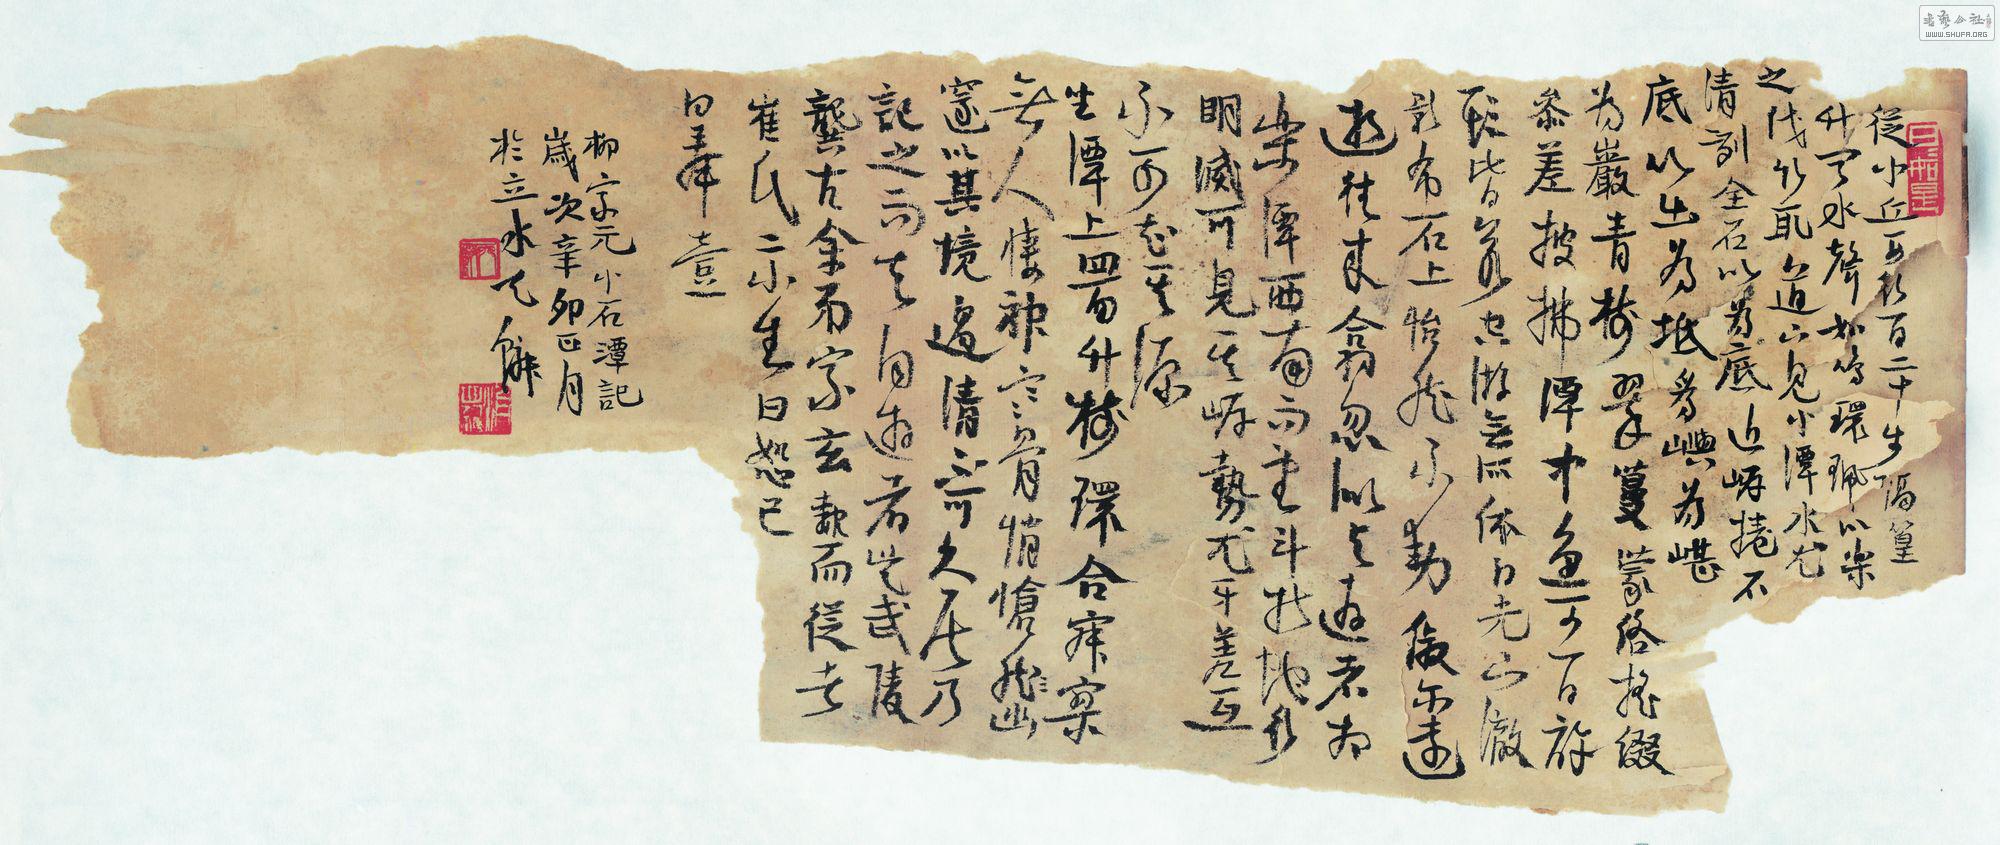 從小丘西行百二十步隔篁
竹聞水聲如鳴環珮心樂
之伐竹取道下見小潭水尤
清冽全石以為底近岸捲石
底以出為坻為嶼為嵁
為巖青樹翠蔓蒙絡搖綴
參差披拂潭中魚可百許
頭皆若空游無所依日光下澈
影布石上怡然不動俶爾遠
逝往來翕忽似與遊者相
樂潭西南而望斗折蛇行
明滅可見其岸勢犬牙差互
不可知其源
坐潭上四面竹樹環合寂寥
無人悽神寒骨悄愴幽邃
以其境過清不可久居乃
記之而去同遊者吳武陵
龔古余弟宗玄隸而從者
崔氏二小生曰恕己
曰奉壹
柳宗元小石潭記
歲次辛卯正月
於立水
書藝公社
WWW.SHUFA.ORG